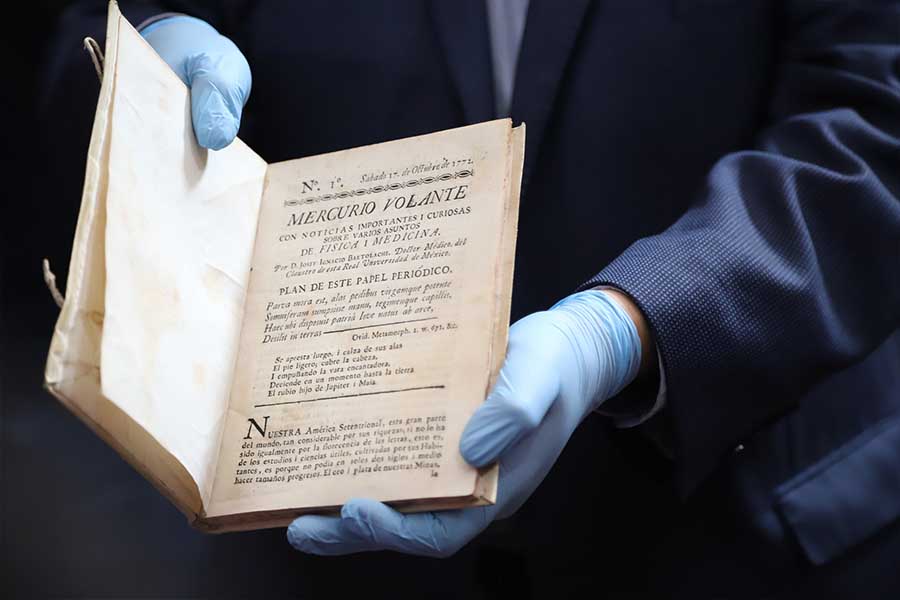 Nº. 1º. Sábado 17. de Octubre de 1772.
MERCURIO VOLANTE
CON NOTICIAS IMPORTANTES I CURIOSAS
SOBRE VARIOS ASUNTOS
DE FISICA I MEDICINA.
Por D. JOSEF IGNACIO BARTOLACHE, Doctor Médico, del
Claustro de esta Real Universidad de México.
PLAN DE ESTE PAPEL PERIÓDICO.
Parva mora est, alas pedibus virgamque potente
Somniferam sumpsisse manu, tegimenque capillis,
Haec ubi disposuit patriâ Iove natus ab arce,
Desilit in terras
Ovid. Metamorph. 1. 671.
Se apresta luego, i calza de sus alas
El pie ligero, cubre la cabeza,
I empuñando la vara encantadora,
Deciende en un momento hasta la tierra
El rubio hijo de Jupiter i Maia.
NUESTRA América Setentrional, esta gran parte
del mundo, tan considerable por sus riquezas, si no lo ha
sido igualmente por la florecencia de las letras, esto es,
de los estudios i ciencias útiles, cultivadas por sus Habi-
tantes, es porque no podia en solos dos siglos i medio
hacer tamaños progresos. El oro i plata de nuestras Minas,
la